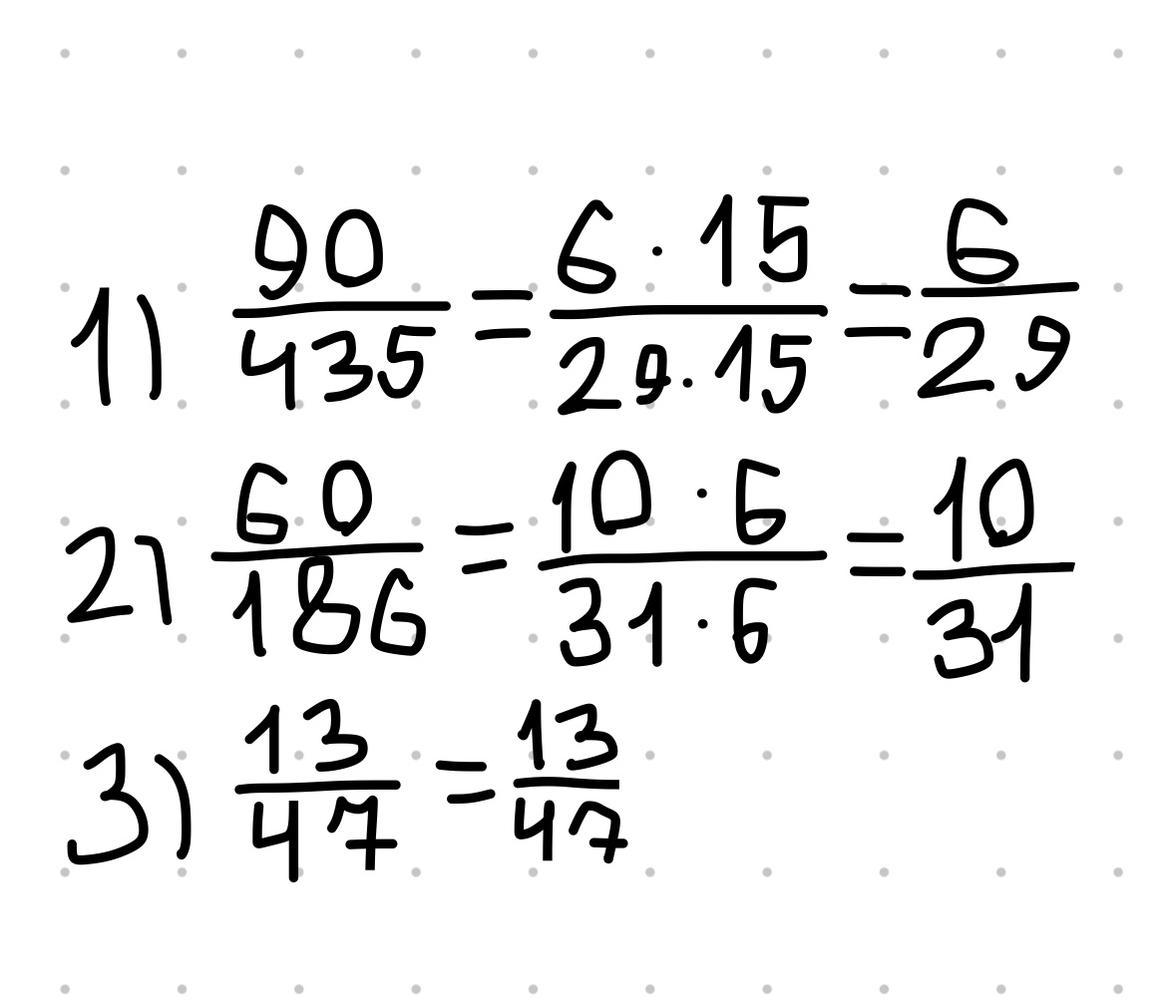 1) 90/435 = 6 · 15/29 · 15 = 6/29
2) 60/186 = 10 · 6/31 · 6 = 10/31
3) 13/47 = 13/47